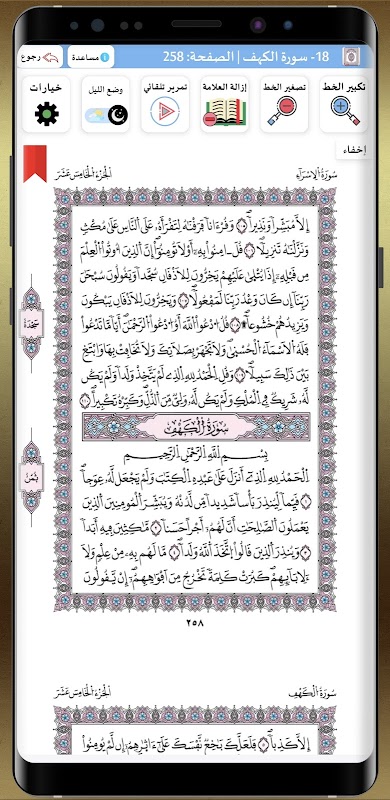 18- سورة الكهف | الصفحة: 258
مساعدة
رجوع
تكبير الخط
تصغير الخط
إزالة العلامة
تمرير تلقائي
وضع الليل
خيارات
إخفاء
سُورَةُ الإِسْرَاءِ
الجُزْءُ الْخَامِسَ عَشَرَ
إِلَّا مُبَشِّراً وَنَذِيراً وَقُرْءَاناً فَرَقْنَٰهُ لِتَقْرَأَهُۥ عَلَى اَلنَّاسِ عَلَىٰ مُكْثٍ
وَنَزَّلْنَٰهُ تَنزِيلاً قُلَ اٰمِنُواْ بِهِۦٓ أَوْ لَا تُومِنُوٓاْ إِنَّ اَلذِينَ أُوتُواْ اُلْعِلْمَ
مِن قَبْلِهِۦٓ إِذَا يُتْلَىٰ عَلَيْهِمْ يَخِرُّونَ لِلَاذْقَانِ سُجَّداً وَيَقُولُونَ سُبْحَٰنَ
رَبِّنَآ إِن كَانَ وَعْدُ رَبِّنَا لَمَفْعُولاً وَيَخِرُّونَ لِلَاذْقَانِ يَبْكُونَ
وَيَزِيدُهُمْ خُشُوعاً قُلُ اُدْعُواْ اُللَّهَ أَوُ اُدْعُواْ اُلرَّحْمَٰنَ أَيّاً مَّا تَدْعُواْ
فَلَهُ اُلَاسْمَآءُ اُلْحُسْنَىٰ وَلَا تَجْهَرْ بِصَلَاتِكَ وَلَا تُخَافِتْ بِهَا وَابْتَغِ
بَيْنَ ذَٰلِكَ سَبِيلاً وَقُلِ اِلْحَمْدُ لِلهِ اِلذِے لَمْ يَتَّخِذْ وَلَداً وَلَمْ يَكُن
لَّهُۥ شَرِيكٌ فِے اِلْمُلْكِ وَلَمْ يَكُن لَّهُۥ وَلِيٌّ مِّنَ اَلذُّلِّ وَكَبِّرْهُ تَكْبِيراً
سَجْدَة
سُورَةُ الْكَهْفِ
بِسْمِ اِللَّهِ اِلرَّحْمَٰنِ اِلرَّحِيمِ
اَلْحَمْدُ لِلهِ اِلذِےٓ أَنزَلَ عَلَىٰ عَبْدِهِ اِلْكِتَٰبَ وَلَمْ يَجْعَل لَّهُۥ عِوَجاً
قَيِّماً لِّيُنذِرَ بَأْساً شَدِيداً مِّن لَّدُنْهُ وَيُبَشِّرَ اَلْمُومِنِينَ اَلذِينَ
يَعْمَلُونَ اَلصَّٰلِحَٰتِ أَنَّ لَهُمُۥٓ أَجْراً حَسَناً مَّٰكِثِينَ فِيهِ أَبَداً
وَيُنذِرَ اَلذِينَ قَالُواْ اُتَّخَذَ اَللَّهُ وَلَداً مَّا لَهُم بِهِۦ مِنْ عِلْمٍ وَلَا
لِأَبَآئِهِمْ كَبُرَتْ كَلِمَةً تَخْرُجُ مِنَ اَفْوَٰهِهِمُۥٓ إِنْ يَّقُولُونَ
ثُمُنْ
٢٥٨
سُورَةُ الْكَهْفِ
الجُزْءُ الْخَامِسَ عَشَرَ
إِلَّا كَذِباً فَلَعَلَّكَ بَٰخِعٌ نَّفْسَكَ عَلَىٰٓ ءَاثٰرِهِمُۥٓ إِن لَّمْ يُومِنُواْ